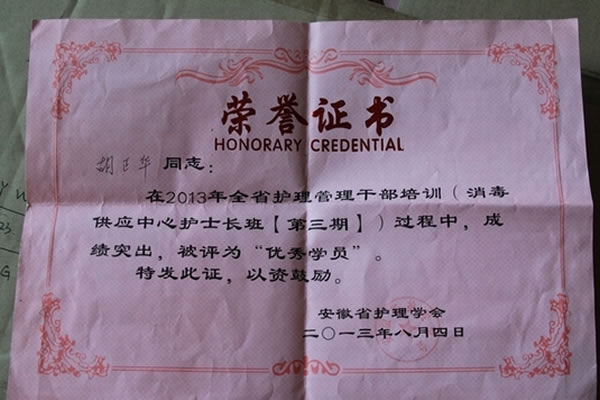 荣誉证书
HONORARY CREDENTIAL
胡正华 同志：
在2013年全省护理管理干部培训（消毒
供应中心护士长班【第三期】）过程中，成
绩突出，被评为“优秀学员”。
特发此证，以资鼓励。
安徽省护理学会
二〇一三年八月四日